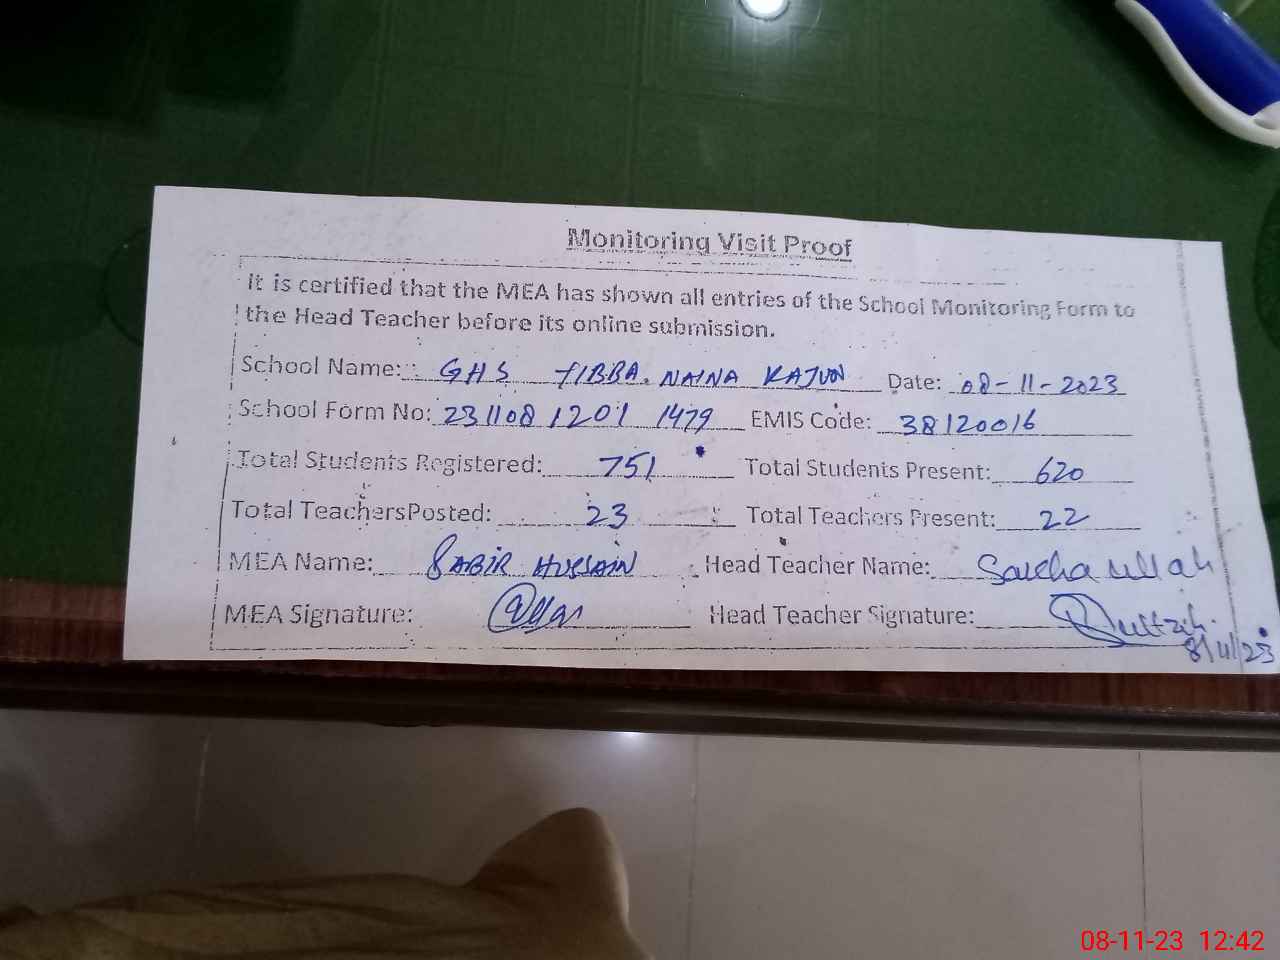 Monitoring Visit Proof
It is certified that the MEA has shown all entries of the School Monitoring Form to
the Head Teacher before its online submission.
School Name: GHS TIBBA. NAINA KAJUN Date: 08-11-2023
School Form No: 231108 1201 1479 EMIS Code: 38120016
Total Students Registered: 751 Total Students Present: 620
Total TeachersPosted: 23 Total Teachers Present: 22
MEA Name: SABIR HUSSAIN Head Teacher Name:
MEA Signature: Head Teacher Signature:
8/11/23
08-11-23 12:42